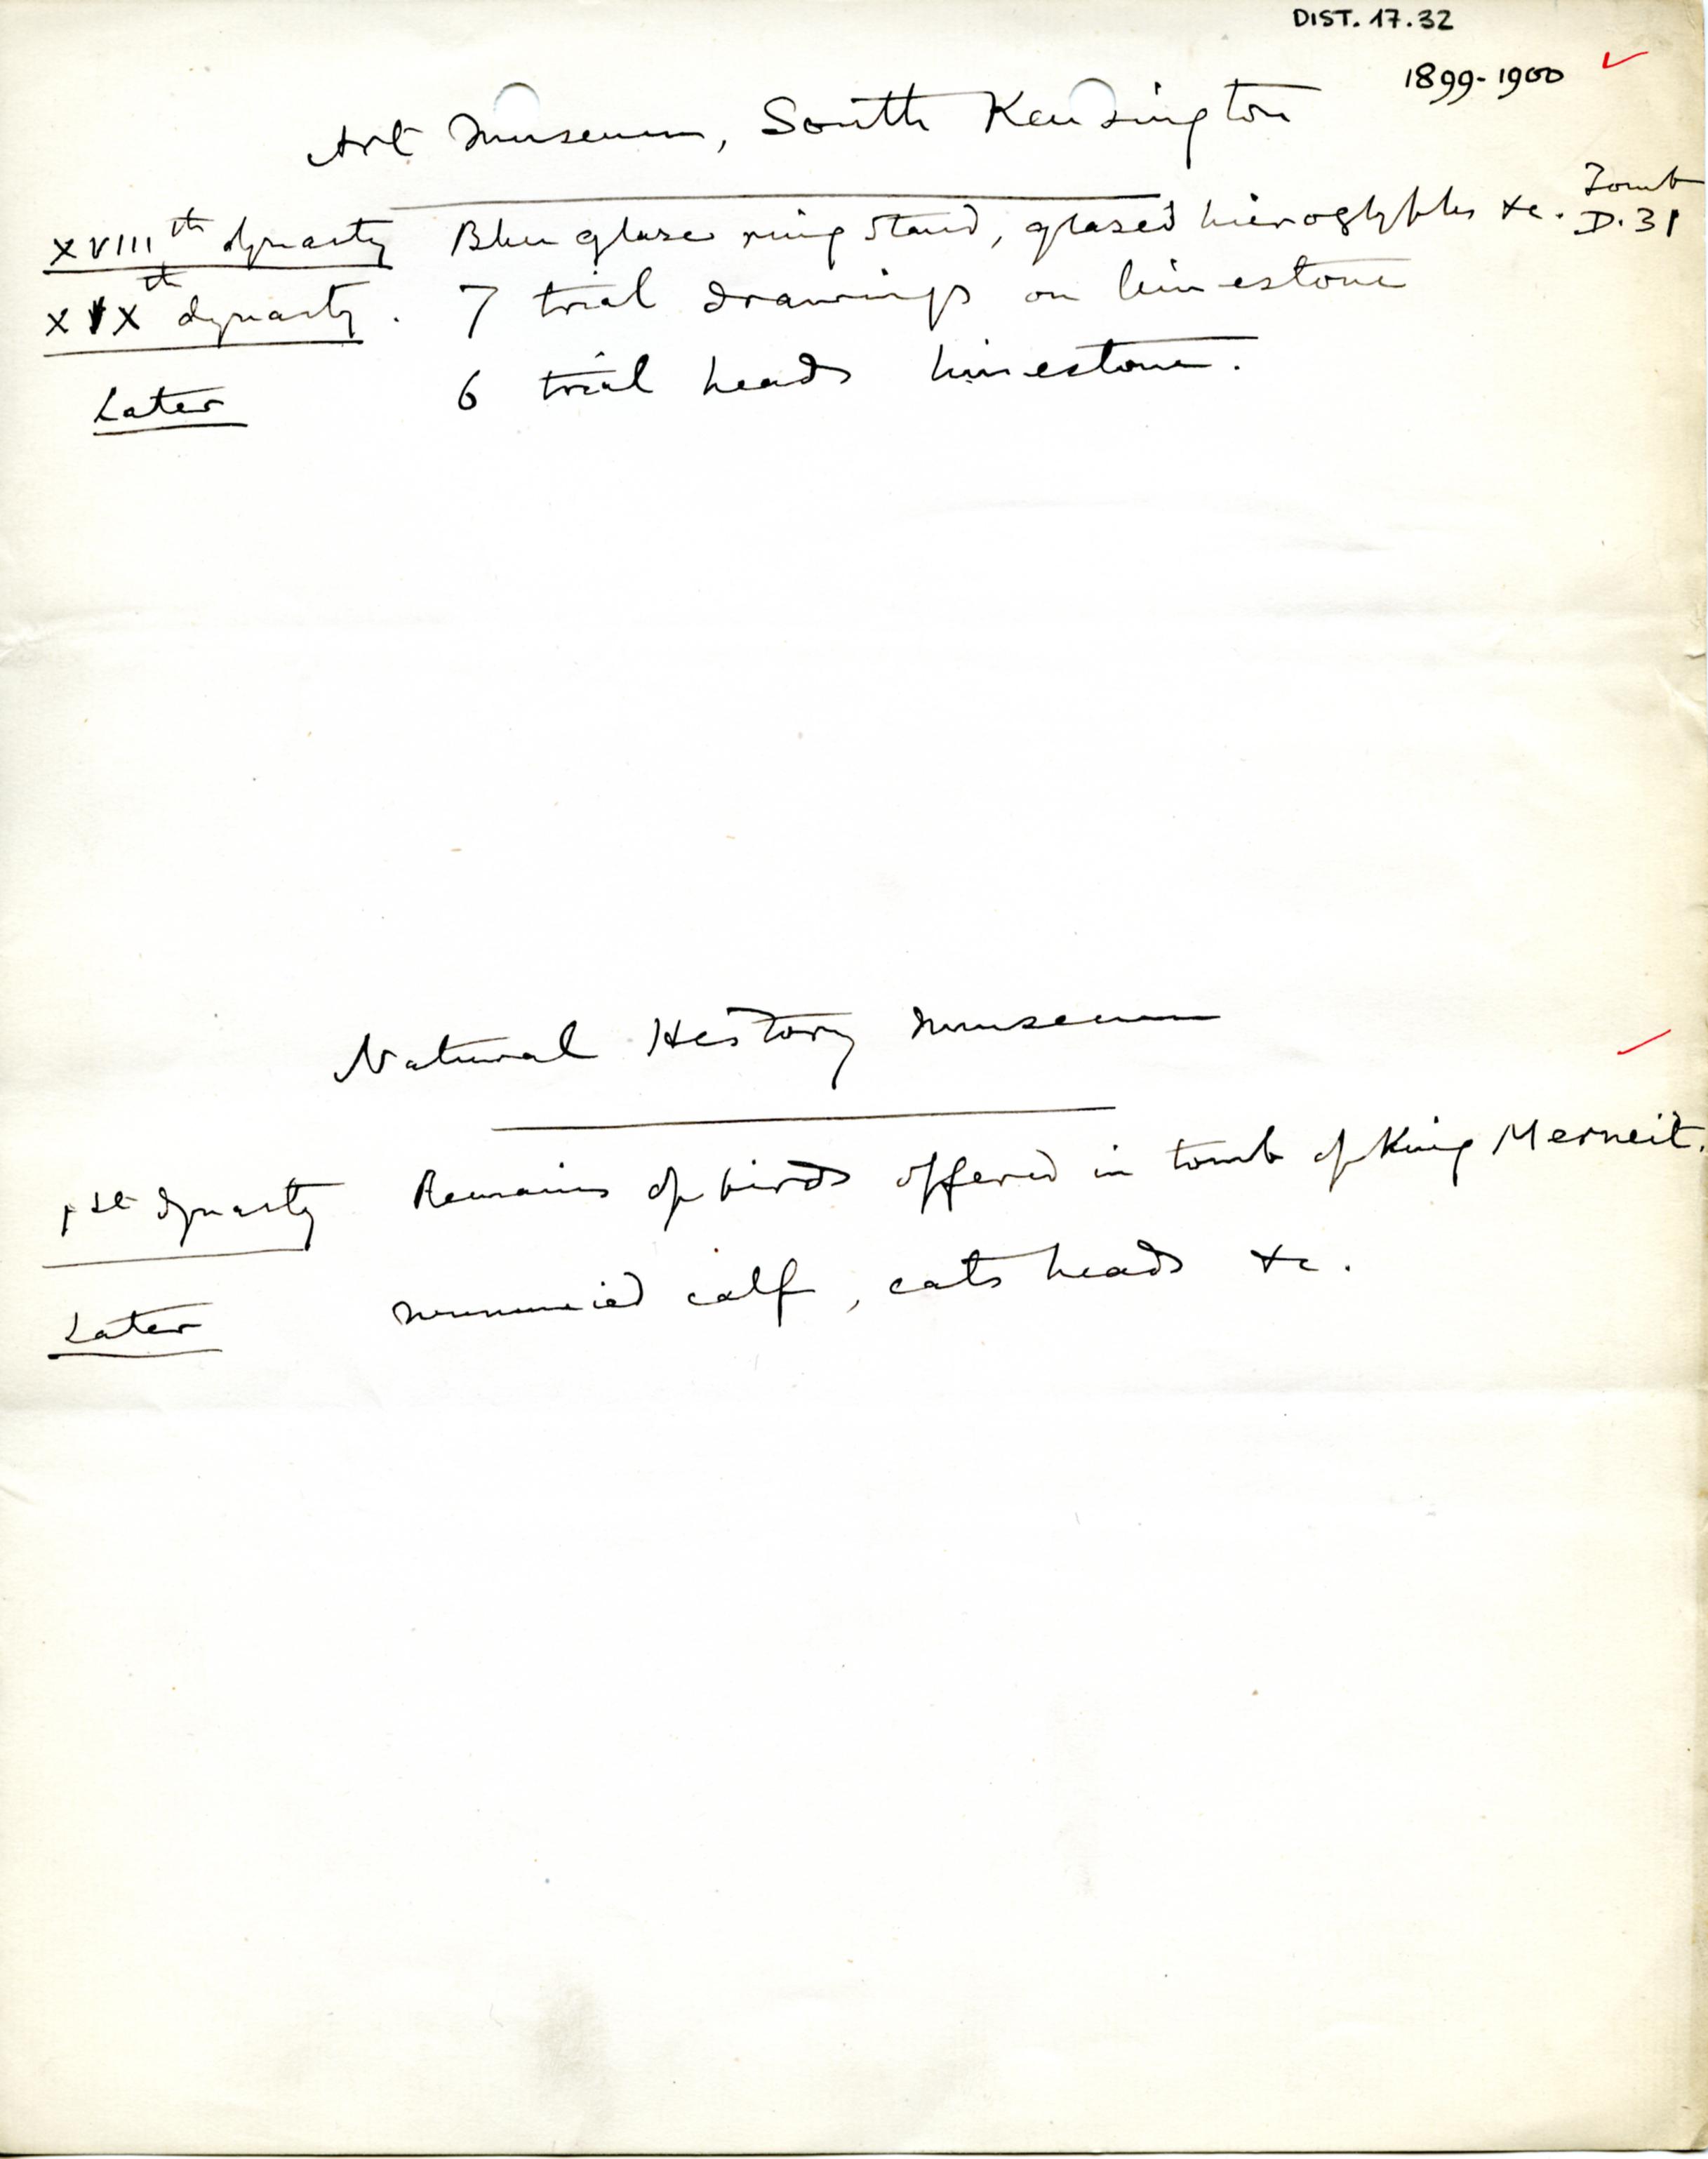 DIST. 17.32
1899-1900
Art Museum, South Kensington
XVIIIth dynasty Blue glaze ring stand, glazed hieroglyphs &c. Tomb D.31
XIXth dynasty. 7 trial drawings on limestone
Later 6 trial heads limestone.
Natural History Museum
1st dynasty Remains of birds offered in tomb of King Merneit.
Later mummied calf, cats heads &c.